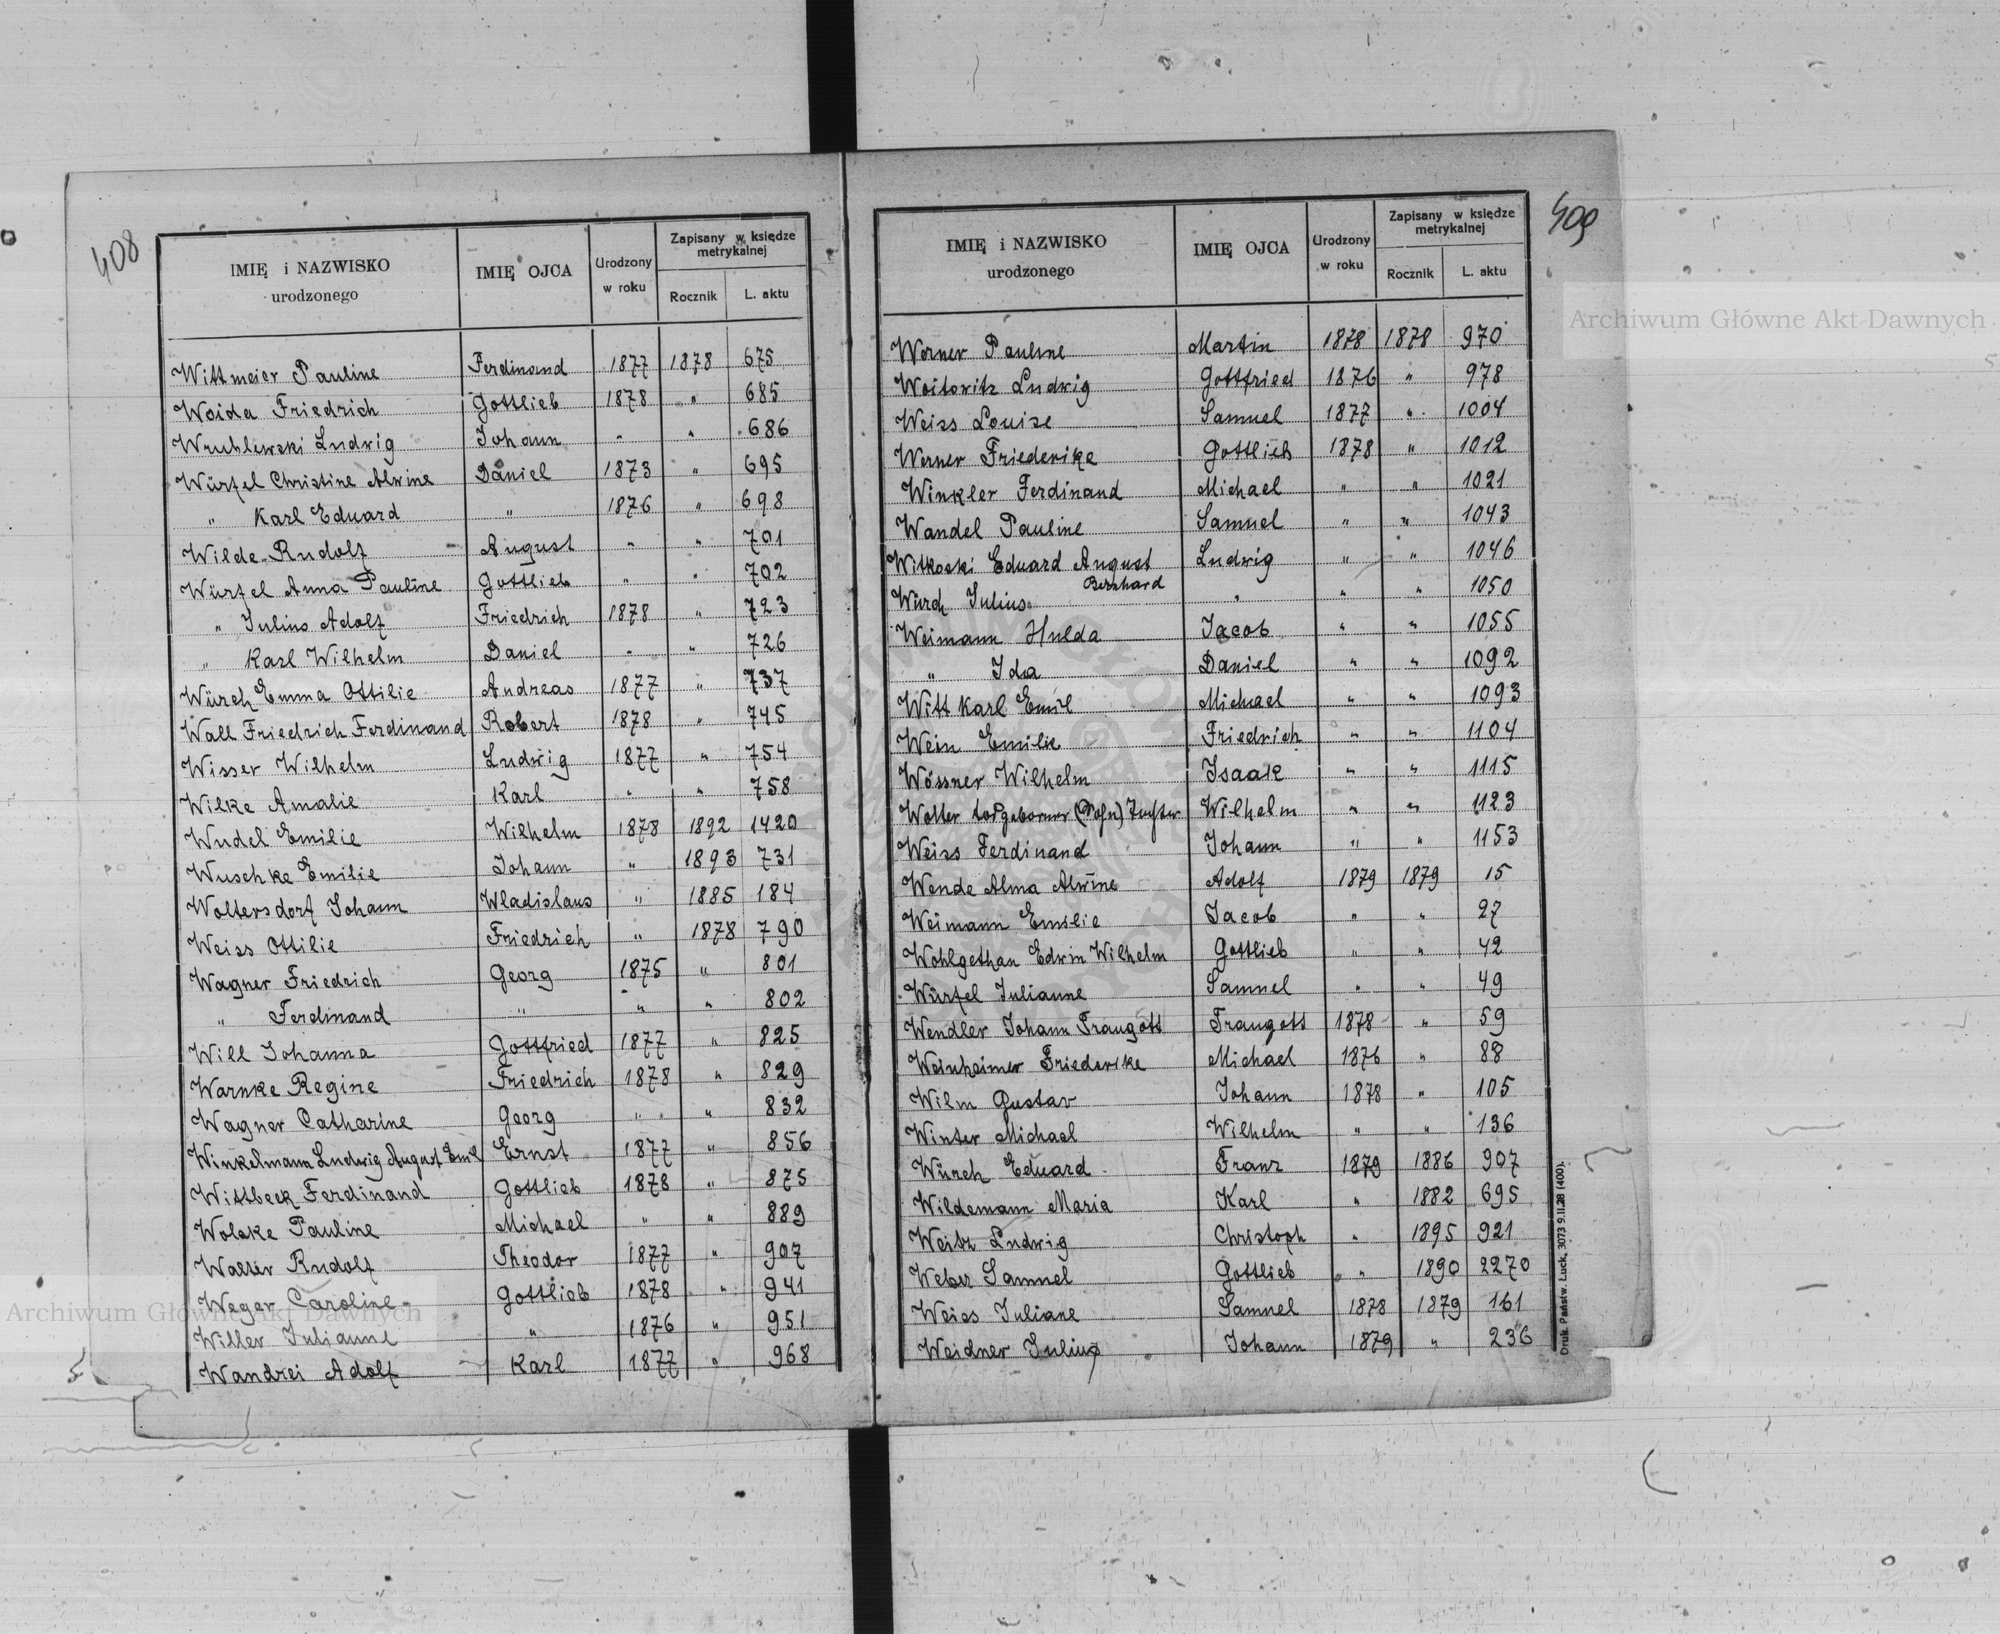 408
IMIĘ i NAZWISKO urodzonego IMIĘ OJCA Urodzony w roku Zapisany w księdze metrykalnej Rocznik L. aktu
Wittmeier Pauline Ferdinand 1877 1878 675
Woida Friedrich Gottlieb 1878 " 685
Wrublewski Ludwig Johann " " 686
Würfel Christine Alwine Daniel 1873 " 695
" Karl Eduard " 1876 " 698
Wilde Rudolf August " " 701
Würfel Anna Pauline Gottlieb " " 702
" Julius Adolf Friedrich 1878 " 723
" Karl Wilhelm Daniel " " 726
Würch Emma Ottilie Andreas 1877 " 737
Wall Friedrich Ferdinand Robert 1878 " 745
Wisser Wilhelm Ludwig 1877 " 754
Wilke Amalie Karl " " 758
Wudel Emilie Wilhelm 1878 1892 1420
Wuschke Emilie Johann " 1893 731
Woltersdorf Johann Wladislaus " 1885 184
Weiss Ottilie Friedrich " 1878 790
Wagner Friedrich Georg 1875 " 801
" Ferdinand " " " 802
Will Johanna Gottfried 1877 " 825
Warnke Regine Friedrich 1878 " 829
Wagner Catharine Georg " " 832
Winkelmann Ludwig August Emil Ernst 1877 " 856
Wittbeck Ferdinand Gottlieb 1878 " 875
Wolske Pauline Michael " " 889
Walter Rudolf Theodor 1877 " 907
Weger Caroline Gottlieb 1878 " 941
Willer Julianne " 1876 " 951
Wandrei Adolf Karl 1877 " 968
409
IMIĘ i NAZWISKO urodzonego IMIĘ OJCA Urodzony w roku Zapisany w księdze metrykalnej Rocznik L. aktu
Werner Pauline Martin 1878 1878 970
Woitowitz Ludwig Gottfried 1876 " 978
Weiss Louise Samuel 1877 " 1004
Werner Friederike Gottlieb 1878 " 1012
Winkler Ferdinand Michael " " 1021
Wandel Pauline Samuel " " 1043
Witkoski Eduard August Ludwig " " 1046
Würch Julius Bernhard " " " 1050
Weimann Hulda Jacob " " 1055
" Ida Daniel " " 1092
Witt Karl Emil Michael " " 1093
Wein Emilie Friedrich " " 1104
Wössner Wilhelm Isaak " " 1115
Wolter totgeborner (Sohn) Tochter Wilhelm " " 1123
Weiss Ferdinand Johann " " 1153
Wende Alma Alwine Adolf 1879 1879 15
Weimann Emilie Jacob " " 27
Wohlgethan Edwin Wilhelm Gottlieb " " 42
Würfel Julianne Samuel " " 49
Wendler Johann Traugott Traugott 1878 " 59
Weinheimer Friederike Michael 1876 " 88
Wilm Gustav Johann 1878 " 105
Winter Michael Wilhelm " " 136
Würch Eduard Franz 1879 1886 907
Wildemann Maria Karl " 1882 695
Weibz Ludwig Christoph " 1895 921
Weber Samuel Gottlieb " 1890 2270
Weiss Juliane Samuel 1878 1879 161
Weidner Julius Johann 1879 " 236
Druk. Państw. Łuck, 3073 9.II.28 (400).
Archiwum Główne Akt Dawnych
Archiwum Główne Akt Dawnych